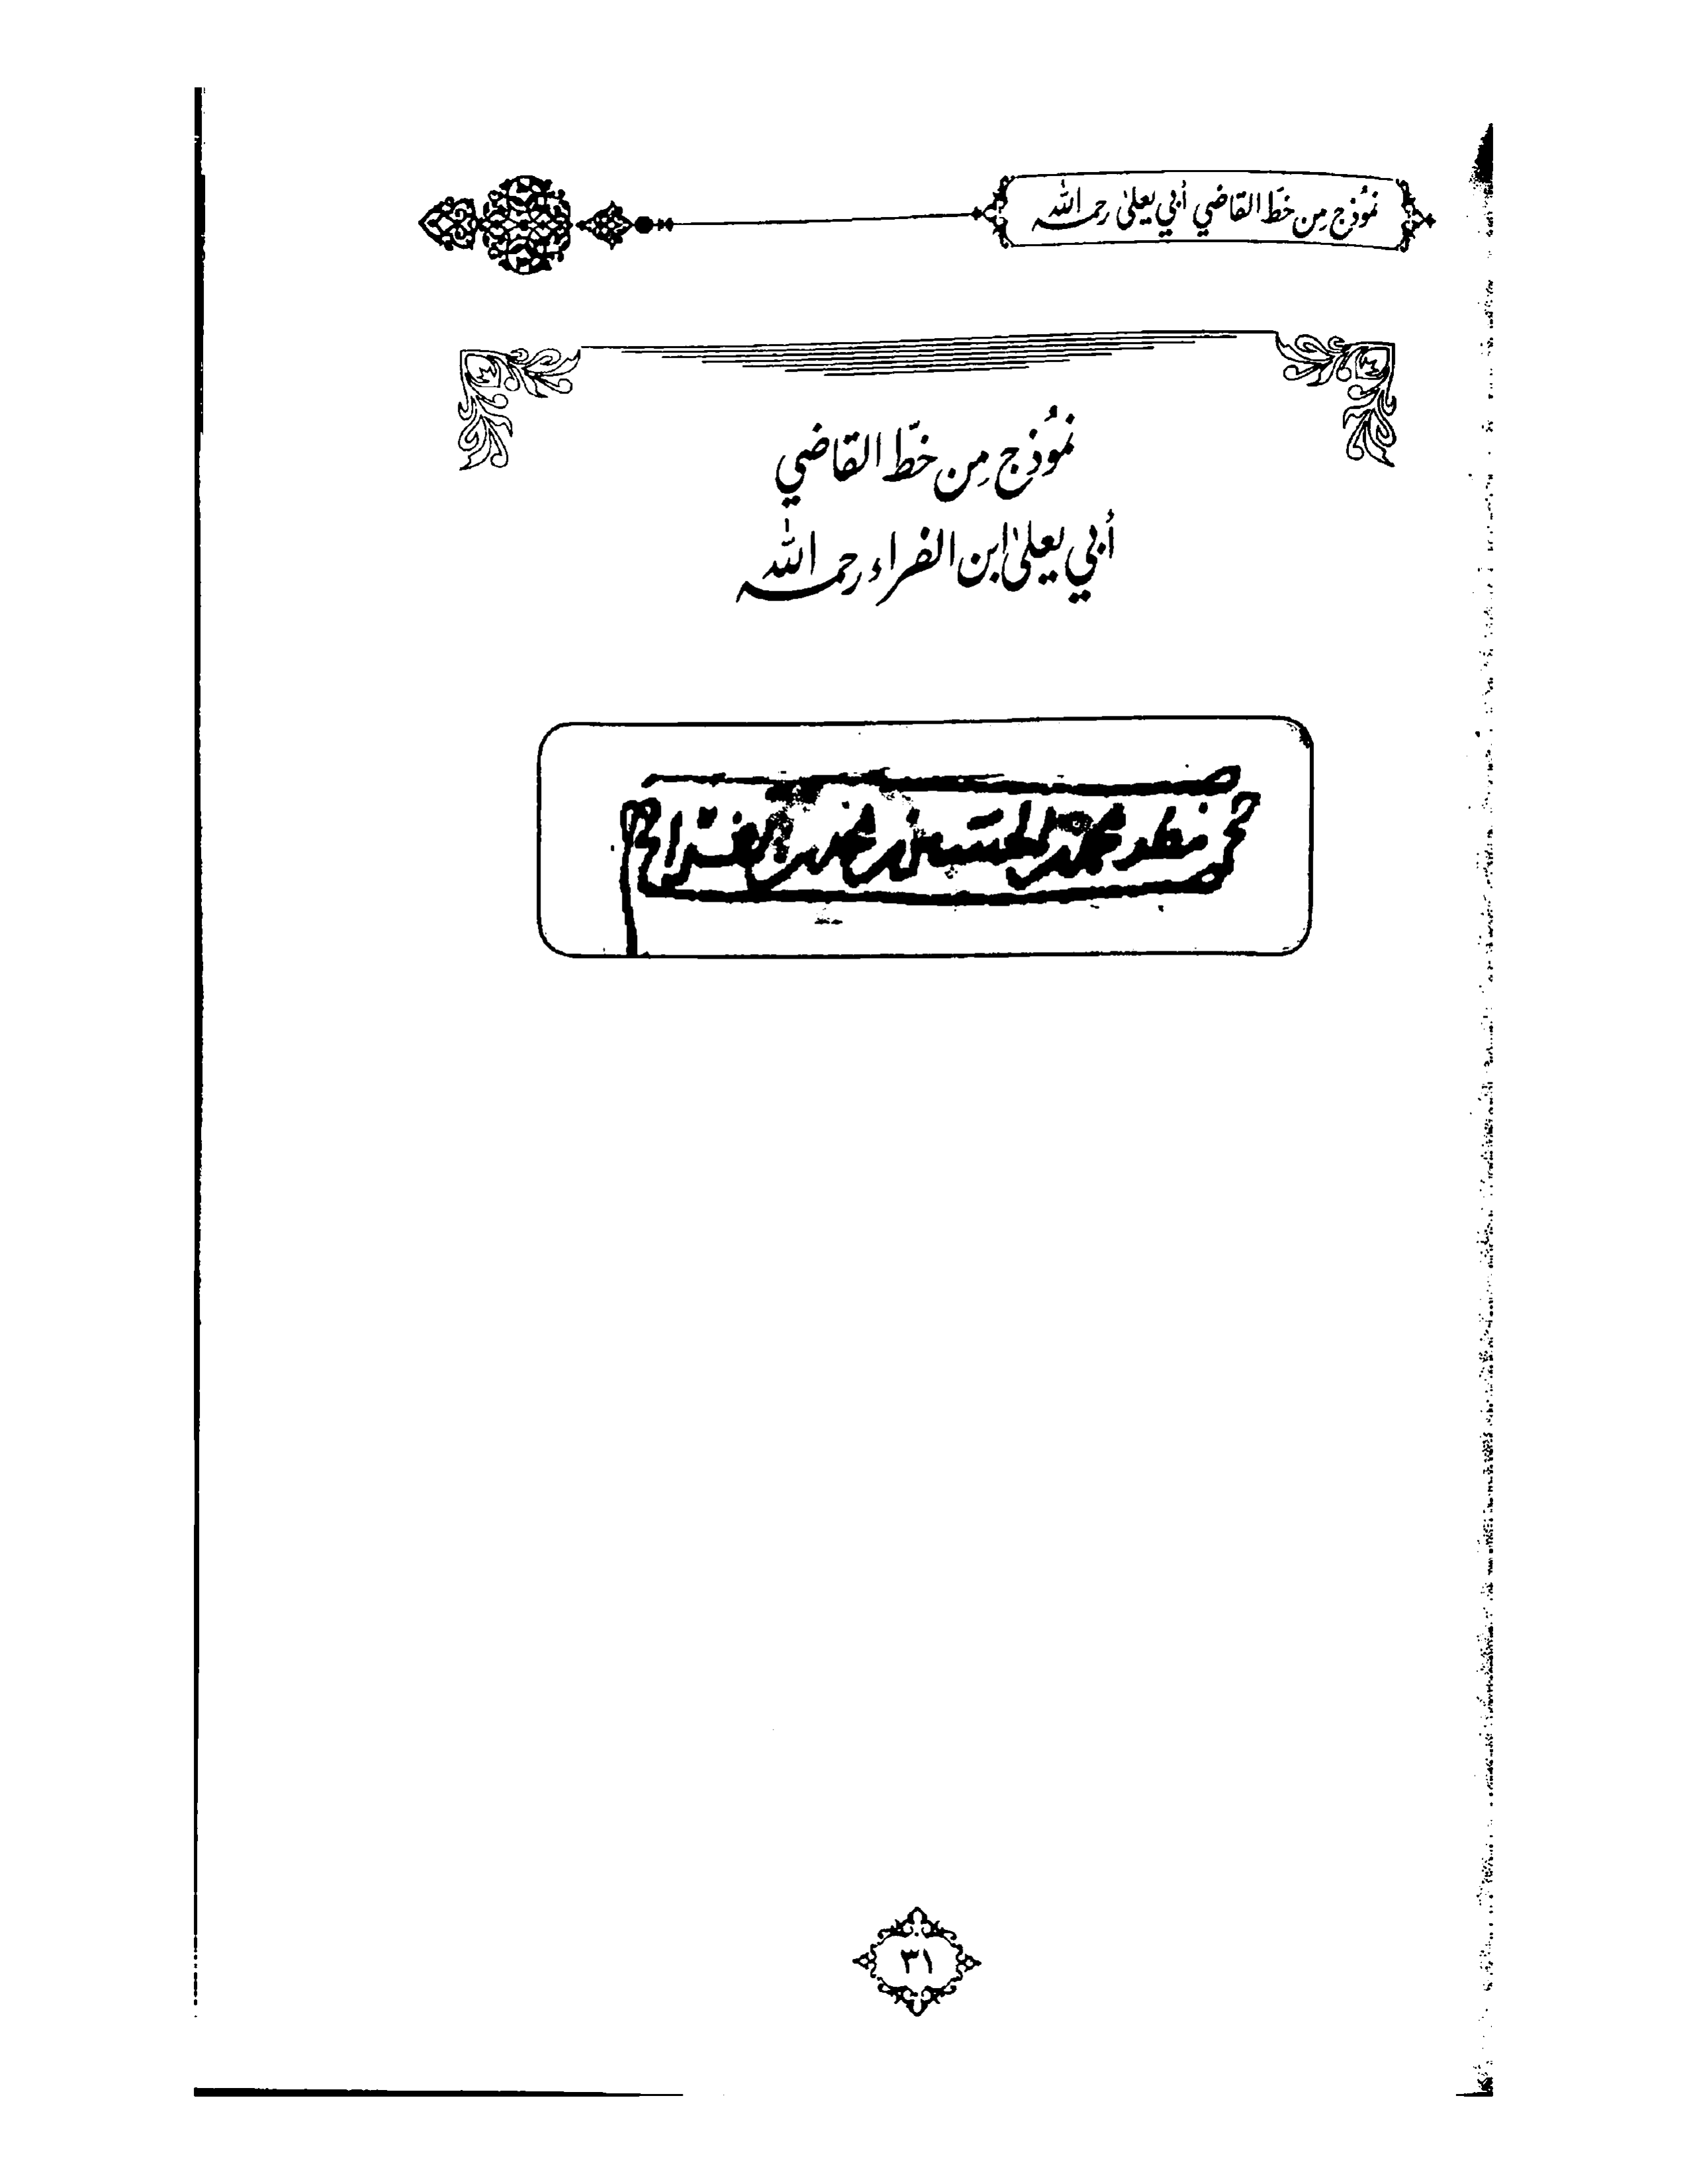 نموُذج مِن خطّ القاضي أبي يعلىٰ رحمه الله
نموُذج مِن خطّ القاضي
أبي يعلىٰ ابن الفراء رحمه الله
محمد بن الحسين بن محمد بن الفرّا
٣١